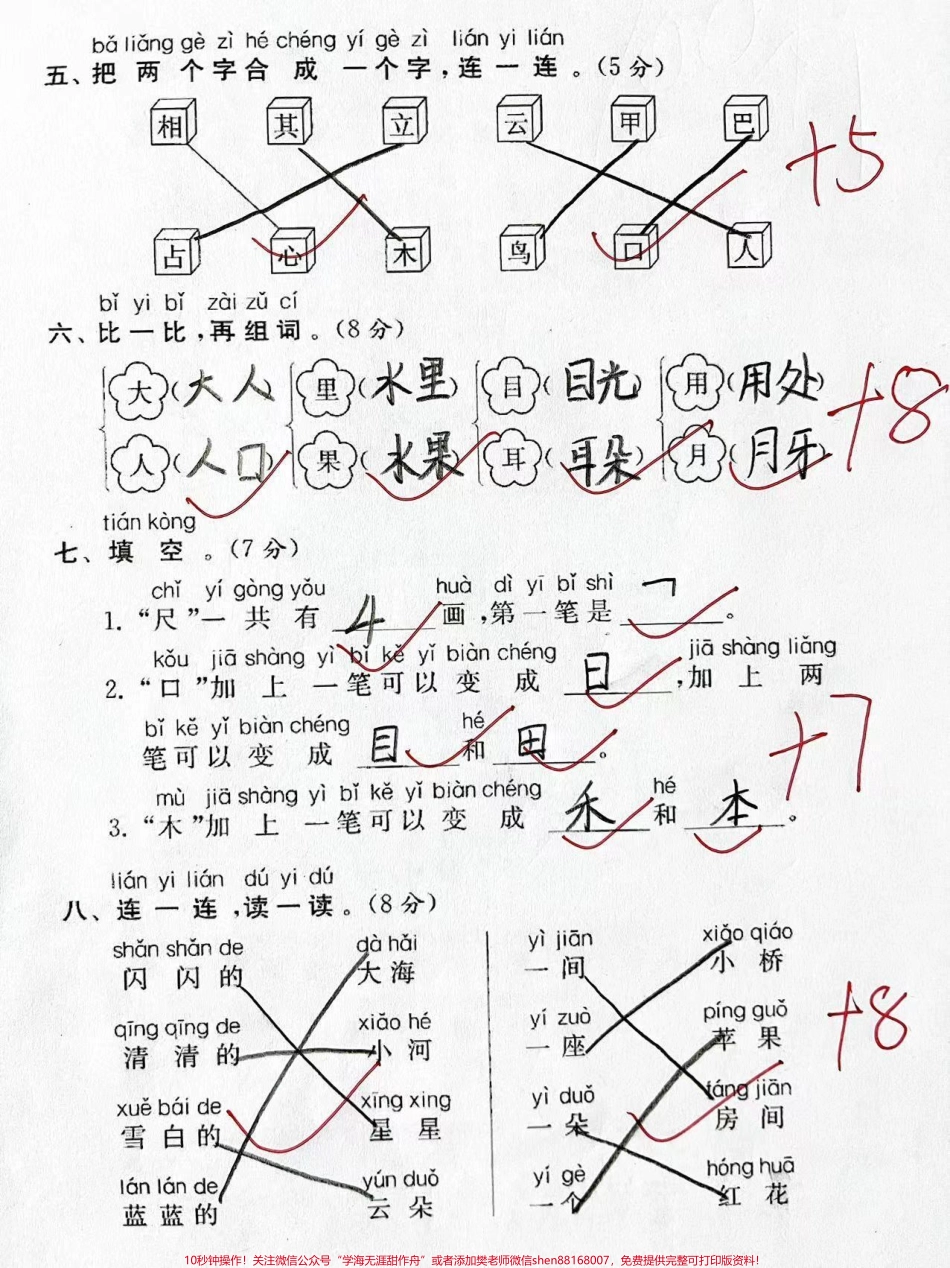 bǎ liǎng gè zì hé chéng yí gè zì lián yi lián
五、把两个字合成一个字,连一连。(5分)
相 其 立 云 甲 巴
+5
占 心 木 鸟 口 人
bǐ yi bǐ zài zǔ cí
六、比一比,再组词。(8分)
大(大人) 里(水里) 目(目光) 用(用处)
+8
人(人口) 果(水果) 耳(耳朵) 月(月牙)
tián kòng
七、填空。(7分)
chǐ yí gòng yǒu huà dì yī bǐ shì
1. “尺”一共有 4 画,第一笔是 ㇕ 。
kǒu jiā shàng yì bǐ kě yǐ biàn chéng jiā shàng liǎng
2. “口”加上一笔可以变成 日 ,加上两
bǐ kě yǐ biàn chéng hé
笔可以变成 目 和 田 。
+7
mù jiā shàng yì bǐ kě yǐ biàn chéng hé
3. “木”加上一笔可以变成 禾 和 本 。
lián yi lián dú yi dú
八、连一连,读一读。(8分)
shǎn shǎn de dà hǎi yì jiān xiǎo qiáo
闪闪的 大海 一间 小桥
qīng qīng de xiǎo hé yí zuò píng guǒ
清清的 小河 一座 苹果
+8
xuě bái de xīng xing yì duǒ fáng jiān
雪白的 星星 一朵 房间
lán lán de yún duǒ yí gè hóng huā
蓝蓝的 云朵 一个 红花
10秒钟操作！关注微信公众号“学海无涯甜作舟”或者添加樊老师微信shen88168007，免费提供完整可打印版资料！